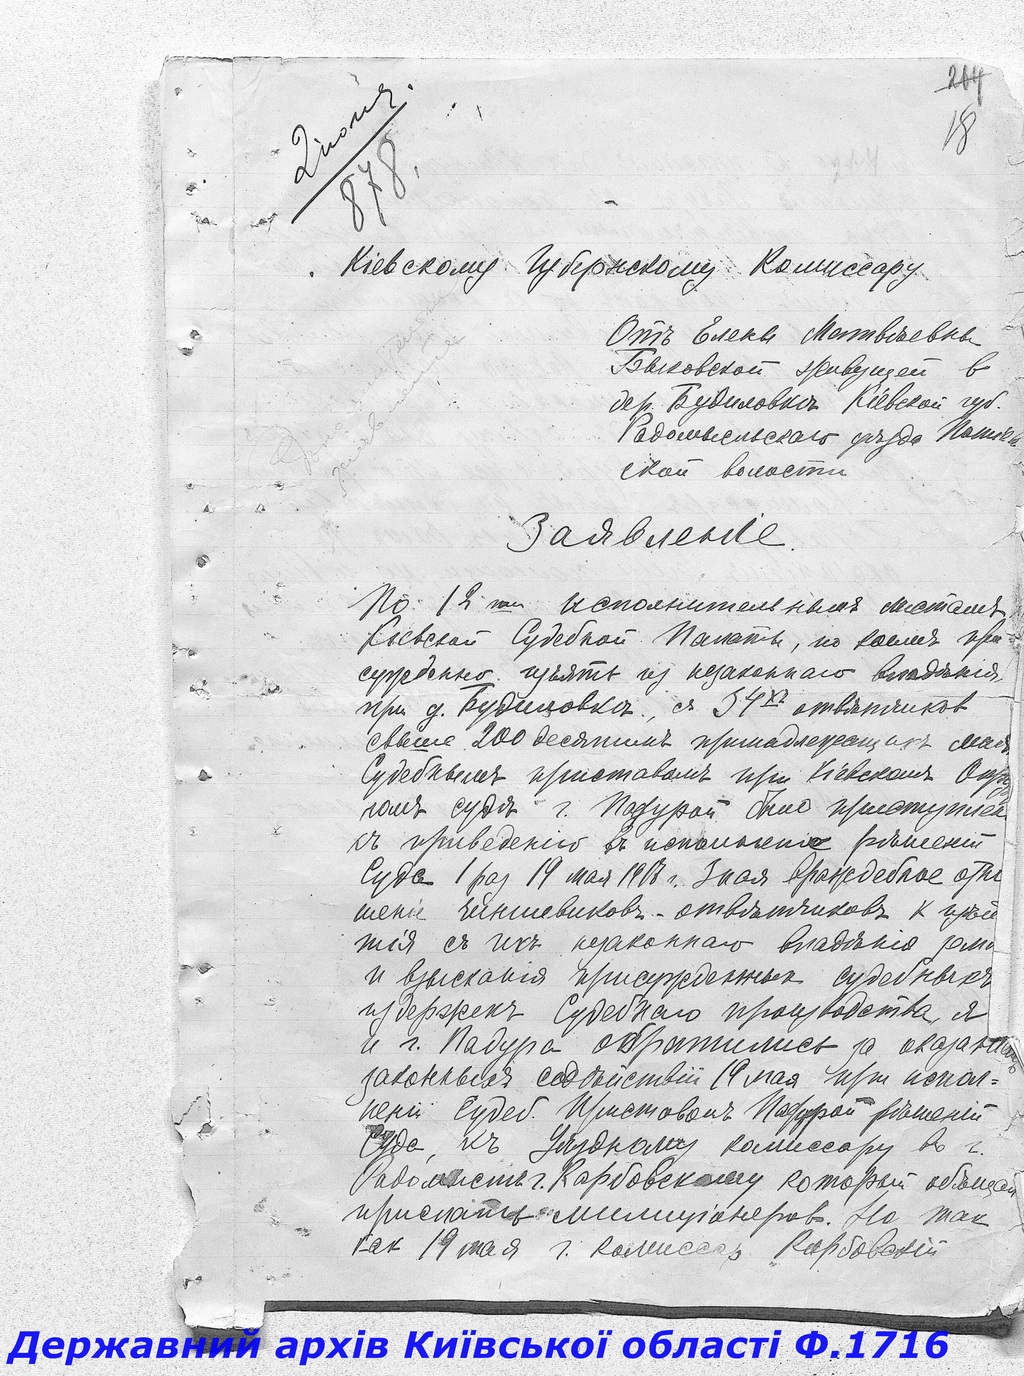 204
18
2 июня.
878.
Кіевскому Губернскому Комиссару
Отъ Елены Матвѣевны
Быковской живущей в
дер. Будиловкѣ Кіевской губ.
Радомысльскаго уѣзда Потіев
ской волости
Заявленіе.
По 12 ти исполнительнымъ листамъ
Кіевской Судебной Палаты, по коимъ при-
суждено изъять из незаконнаго владѣнія
при д. Будиловкѣ, съ 34хъ отвѣтчиков
свыше 200 десятинъ принадлежащихъ мнѣ
Судебнымъ приставомъ при Кіевскомъ Окру
номъ судѣ г. Падурой было приступлен
къ приведенію въ исполненіе рѣшеній
Суда 1 раз 19 мая 1917 г. Зная враждебное отно
шеніе чиншевиковъ-отвѣтчиковъ к изъя
тія съ ихъ незаконнаго владѣнія земли
и взысканія присужденныхъ судебныхъ
издержекъ Судебнаго производства, я
и г. Падура обратились за оказан
законныхъ содѣйствій 19 мая при испол-
неніи Судеб. Приставомъ Падурой рѣшеній
Суда, къ Уѣздному комиссару въ г.
Радомыслѣ г. Карбовскому который обѣщал
прислать милиціонеров. Но так
как 19 мая г. комиссар Карбовскій
Державний архів Київської області Ф.1716